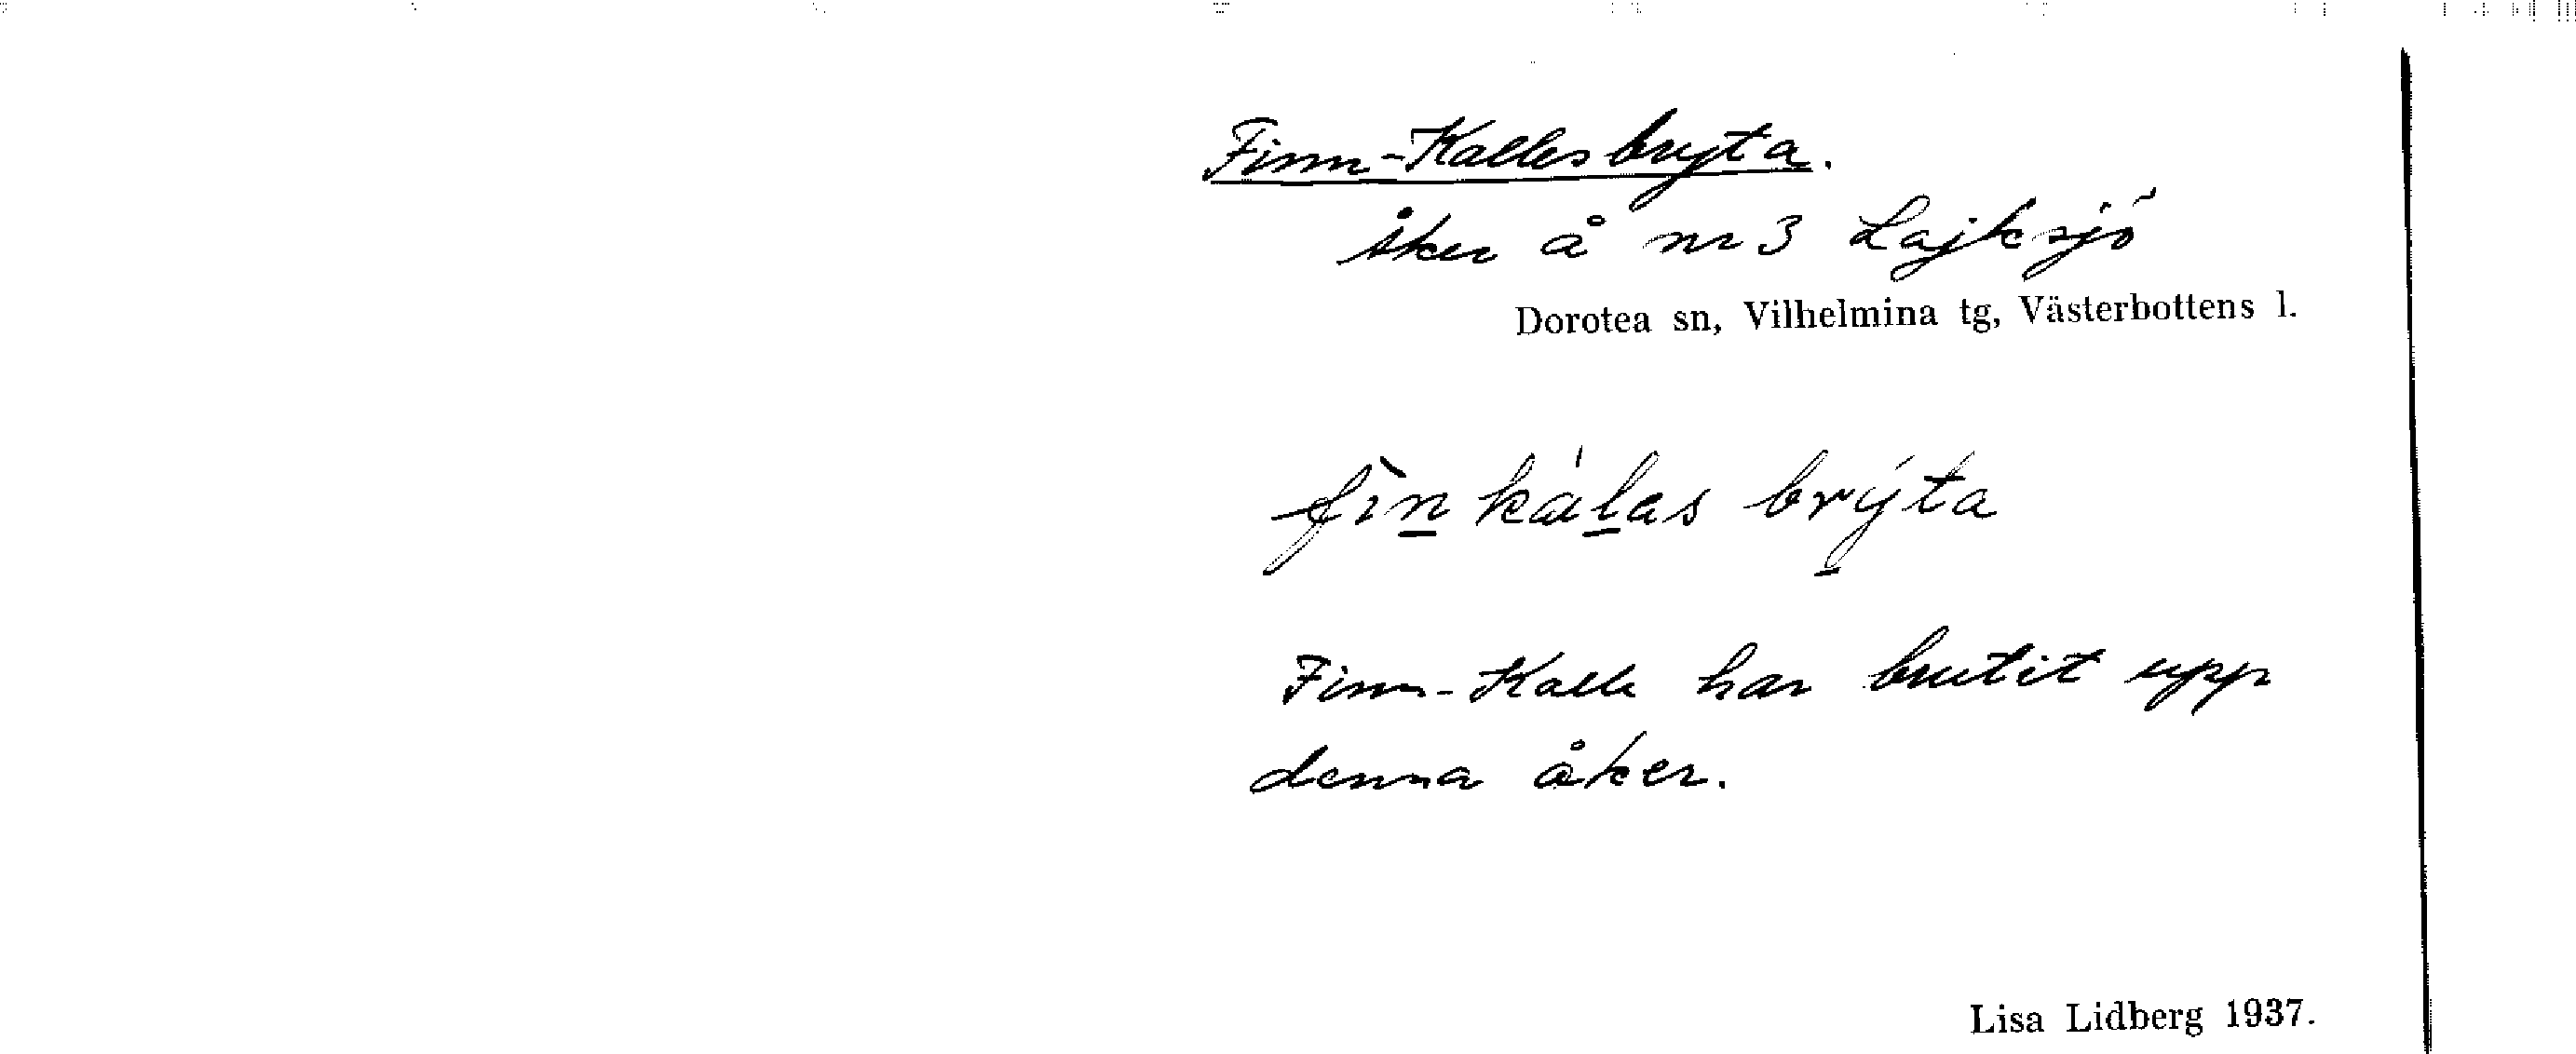 Finn-Kallesbryta.
åker å nr 3 Lajksjö
Dorotea sn, Vilhelmina tg, Västerbottens l.
fìn kálas brýta
Finn-Kalle har brutit upp
denna åker.
Lisa Lidberg 1937.